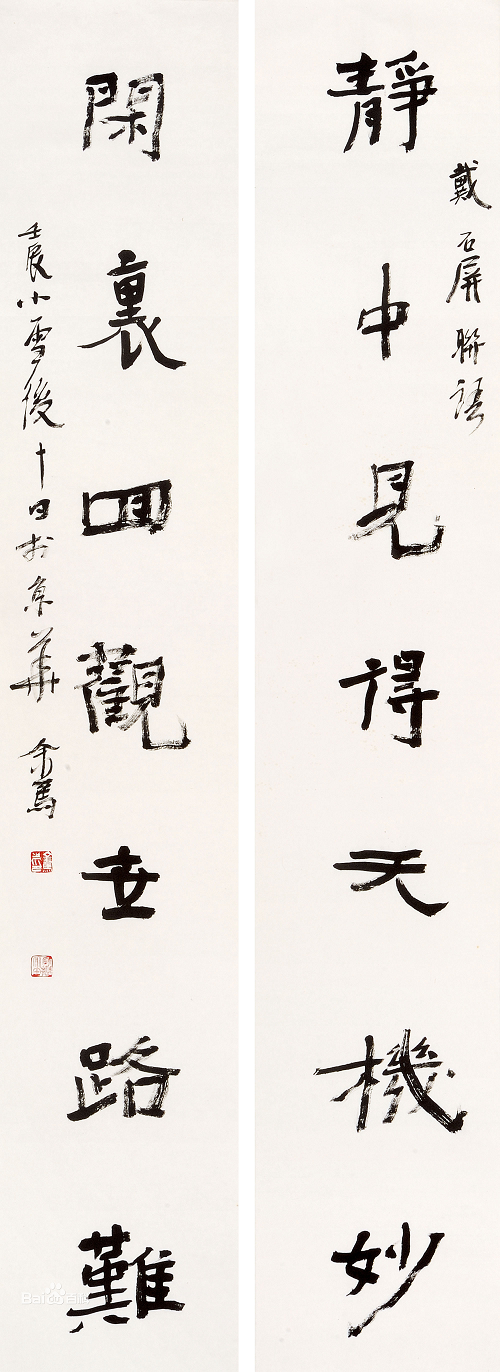 戴石屏聯語
靜中見得天機妙
閑裏回觀世路難
壬辰小雪後十日於京華
Bai百科